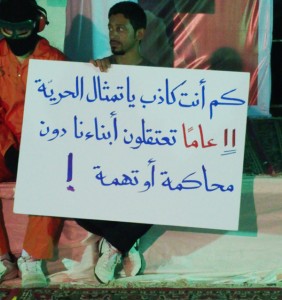 كم أنت كاذب يا تمثال الحرية
!! عامًا تعتقلون أبناءنا دون
محاكمة أو تهمة !